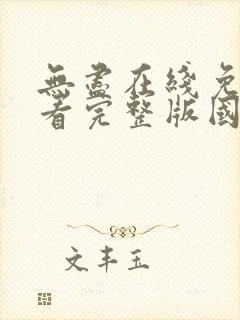 無盡在綫免
看完整版國
文丰玉